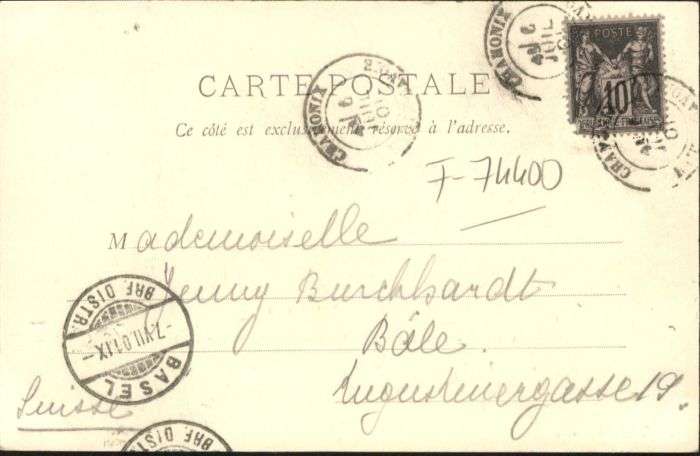 CARTE POSTALE
Ce côté est exclusivement réservé à l'adresse.
CHAMONIX
6
JUIL
01
CHAMONIX
6
JUIL
01
POSTE
10
F-74400
Mademoiselle
Jenny Burckhardt
Bâle
Augustinergasse 19.
Suisse
BASEL
BRF. DISTR.
-7.VII.01.IX-
BRF. DISTR.